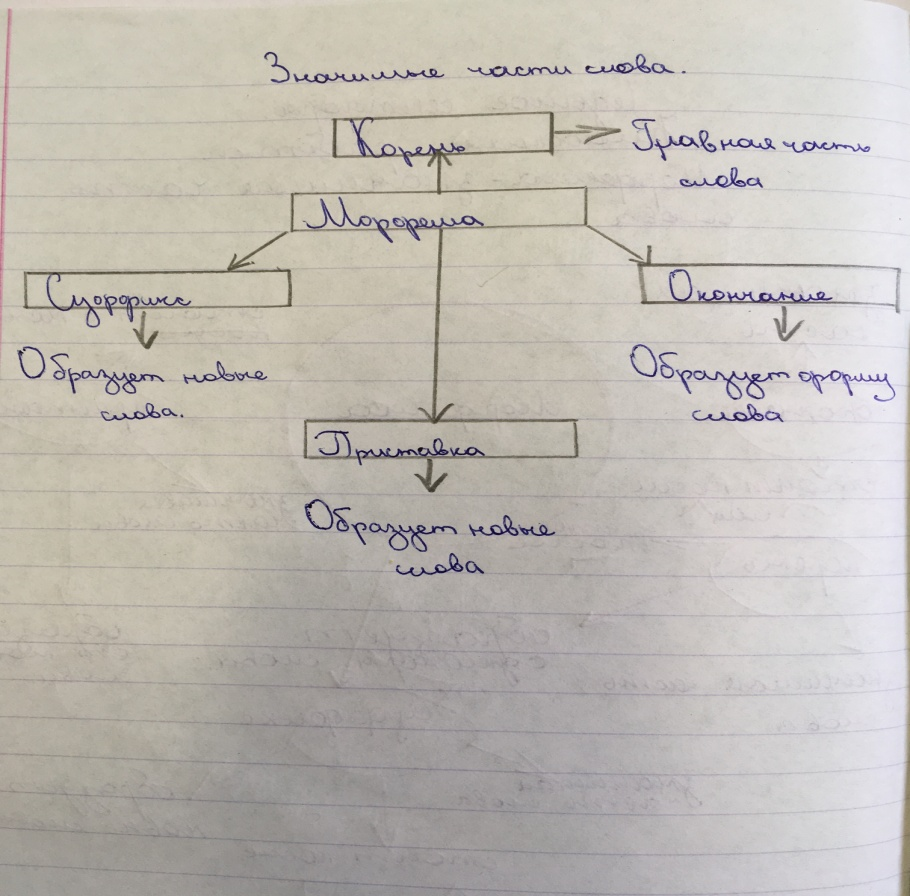 Значимые части слова.
Корень
Главная часть
слова
Морфема
Суффикс
Окончание
Образует новые
слова.
Образует форму
слова
Приставка
Образует новые
слова